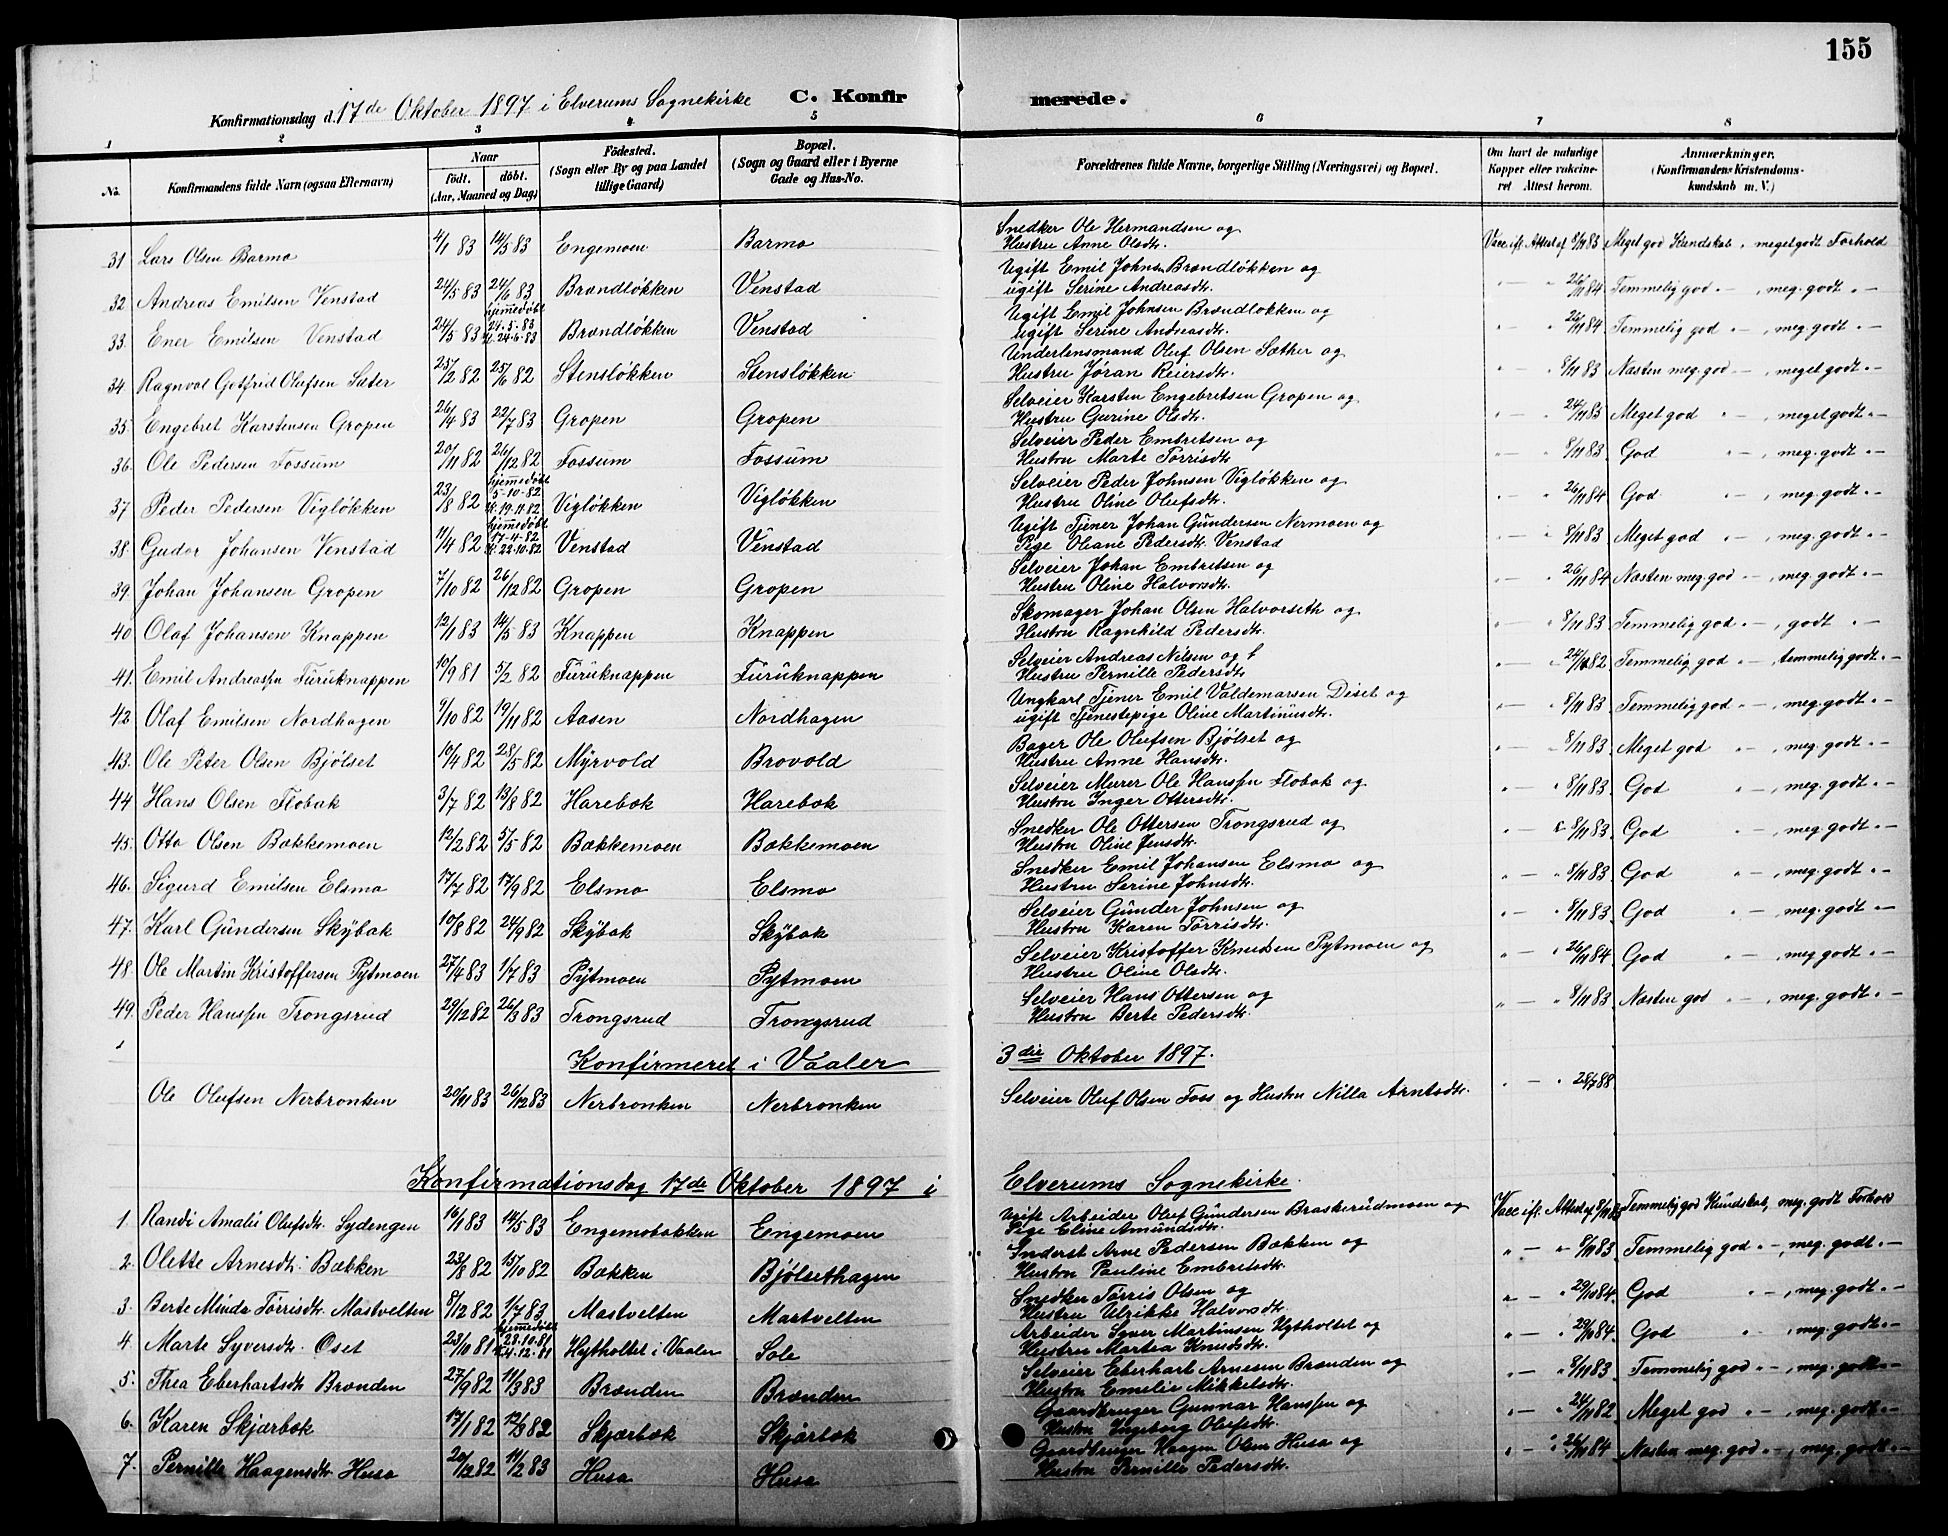 155
Konfirmationsdag d. 17de Oktober 1897 i Elverums Sognekirke C. Konfirmerede.
1 2 3 4 5 6 7 8
No. Konfirmandens fulde Navn (ogsaa Efternavn) Naar født. døbt. (Aar, Maaned og Dag) Fødested. (Sogn eller By og paa Landet tillige Gaard) Bopæl. (Sogn og Gaard eller i Byerne Gade og Hus-No. Forældrenes fulde Navne, borgerlige Stilling (Næringsvei) og Bopæl. Om havt de naturlige Kopper eller vakcineret. Attest herom. Anmærkninger. (Konfirmandens Kristendomskundskab m. V.)
31 Lars Olsen Barmo 4/1 83 14/5 83 Engemoen Barmo Snedker Ole Hermandsen og Hustru Anne Olsdtr. Vacc. ifl. Attest af 8/11 83 Meget god Kundskab, meget godt Forhold
32 Andreas Emilsen Venstad 24/5 83 24/6 83 Brændløkken Venstad Ugift Emil Johnsen Brændløkken og ugift Serine Andreasdtr. " — " 26/11 84 Temmelig god " —, meg. godt " —
33. Ener Emilsen Venstad 24/5 83 hjemmedøbt 24-5-83 24-6-83 Brændløkken Venstad Ugift Emil Johnsen Brændløkken og ugift Serine Andreasdtr. " — " 26/11 84 Temmelig god " —, meg. godt " —
34. Ragnvol Gotfrid Olafsen Sæter 23/2 82 25/6 82 Stensløkken Stensløkken Underlensmand Oluf Olsen Sæther og Hustru Jøran Reiersdtr. " — " 8/11 83 Næsten meg. god " —, meget godt " —
35. Engebret Karstensen Gropen 26/4 83 22/7 83 Gropen Gropen Selveier Karsten Engebretsen Gropen og Hustru Gurine Olsdtr. " — " 24/11 83 Meget god " —, meget godt " —
36. Ole Pedersen Fossum 20/11 82 26/12 82 Fossum Fossum Selveier Peder Embretsen og Hustru Marte Tørrisdtr. " — " 8/11 83 God " —, meg. godt " —
37 Peder Pedersen Vigløkken 23/8 82 hjemmedøbt 5-10-82 19.11.82 Vigløkken Vigløkken Selveier Peder Johnsen Vigløkken og Hustru Oline Olufsdtr. " — " 26/11 84 God " —, meg. godt " —
38. Gudor Johansen Venstad 11/4 82 hjemmedøbt 17-4-82 22-10-82 Venstad Venstad Ugift Tjener Johan Gundersen Nermoen og Pige Oliane Pedersdtr. Venstad " — " 8/11 83 Meget god " —, meg. godt " —
39. Johan Johansen Gropen 7/10 82 26/12 82 Gropen Gropen Selveier Johan Embretsen og Hustru Oline Halvorsdtr. " — " 26/11 84 Næsten meg. god " —, meg. godt " —
40 Olaf Johansen Knappen 12/1 83 14/5 83 Knappen Knappen Skomager Johan Olsen Halvorseth og Hustru Ragnhild Pedersdtr. " — " 8/11 83 Temmelig god " —, godt " —
41. Emil Andreassen Furuknappen 10/9 81 5/2 82 Furuknappen Furuknappen Selveier Andreas Nilsen og Hustru Pernille Pedersdtr. " — " 82 Temmelig god " —, temmelig godt " —
42 Olaf Emilsen Nordhagen 9/10 82 19/11 82 Aasen Nordhagen Ungkarl Tjener Emil Valdemarsen Diset og ugift Tjenestepige Oline Martinusdtr. " — " 8/11 83 Temmelig god " —, meg. godt " —
43. Ole Peter Olsen Bjølset 10/4 82 28/5 82 Myrvold Brovold Bager Ole Olufsen Bjølset og Hustru Anne Hansdtr. " — " 8/11 83 Meget god " —, meg. godt " —
44 Hans Olsen Flobak 3/7 82 13/8 82 Harebæk Harebæk Selveier Murer Ole Hanssen Flobak og Hustru Inger Ottersdtr. " — " 8/11 83 God " —, meg. godt " —
45. Otto Olsen Bækkemoen 12/2 82 5/5 82 Bækkemoen Bækkemoen Snedker Ole Ottersen Trongsrud og Hustru Oline Jensdtr. " — " 8/11 83. God " —, meg. godt " —
46. Sigurd Emilsen Elsmo 17/7 82 17/9 82 Elsmo Elsmo Snedker Emil Johansen Elsmo og Hustru Serine Johnsdtr. " — " 8/11 83 God " —, meg. godt " —
47. Karl Gundersen Skybak 10/8 82 24/9 82 Skybak Skybak Selveier Gunder Johnsen og Hustru Karen Tørrisdtr. " — " 8/11 83. God " —, meg. godt " —
48. Ole Martin Kristoffersen Pytmoen 27/4 83 1/7 83 Pytmoen Pytmoen Selveier Kristoffer Knudsen Pytmoen og Hustru Oline Olsdtr. " — " 26/11 84 God " —, meg. godt " —
49. Peder Hanssen Trongsrud 29/12 82 26/3 83 Trongsrud Trongsrud Selveier Hans Ottersen og Hustru Berte Pedersdtr. " — " 8/11 83 Næsten god " —, meg. godt " —
Konfirmeret i Vaaler 3die Oktober 1897.
Ole Olufsen Nerbronken 20/11 83 26/12 83 Nerbronken Nerbronken Selveier Oluf Olsen Foss og Hustru Nilla Arntsdtr. " — " 88
Konfirmationsdag 17de Oktober 1897 i Elverums Sognekirke.
1. Randi Amalie Olufsdtr. Lydengen 16/1 83 14/5 83 Engemobakken Engemoen Ugift Arbeider Oluf Gundersen Braskerudmoen og Pige Eline Amundsdtr. Vacc. ifl. Attest af 8/11 83 Temmelig god Kundskab, meg. godt Forhold
2. Olette Arnesdtr. Bækken 23/8 82 15/10 82 Bækken Bjølsethagen Inderst Arne Pedersen Bækken og Hustru Pauline Embretsdtr. " — " 8/11 83 Temmelig god " —, meg. godt " —
3. Berte Minda Tørrisdtr. Mastvelten 8/12 82 1/7 83 Mastvelten Mastvelten Snedker Tørris Olsen og Hustru Ulrikke Halvorsdtr. " — " 29/10 84. God " —, meg. godt " —
4. Marte Syversdtr. Oset 23/10 81 hjemmedøbt 28-10-81 4-12-81 Hytholtet i Vaaler Sole Arbeider Syver Martinsen Hytholtet og Hustru Martea Knudsdtr. " — " 29/10 84. God " —, meg. godt " —
5. Thea Eberhartsdtr. Brænden 27/9 82 11/3 83 Brænden Brænden Selveier Eberhart Arnesen Brænden og Hustru Emelie Mikkelsdtr. " — " 8/11 83 Temmelig god " —, meg. godt " —
6. Karen Skjærbæk 17/1 82 12/3 82 Skjærbæk Skjærbæk Gaardbruger Gunnar Hanssen og Hustru Ingeborg Olufsdtr. " — " 24/11 82 Meget god " —, meg. godt " —
7. Pernille Haagensdtr. Husa 20/12 82 11/2 83 Husa Husa Gaardbruger Haagen Olsen Husa og Hustru Pernille Pedersdtr. " — " 26/11 84 Næsten meg. god " —, meg. godt " —